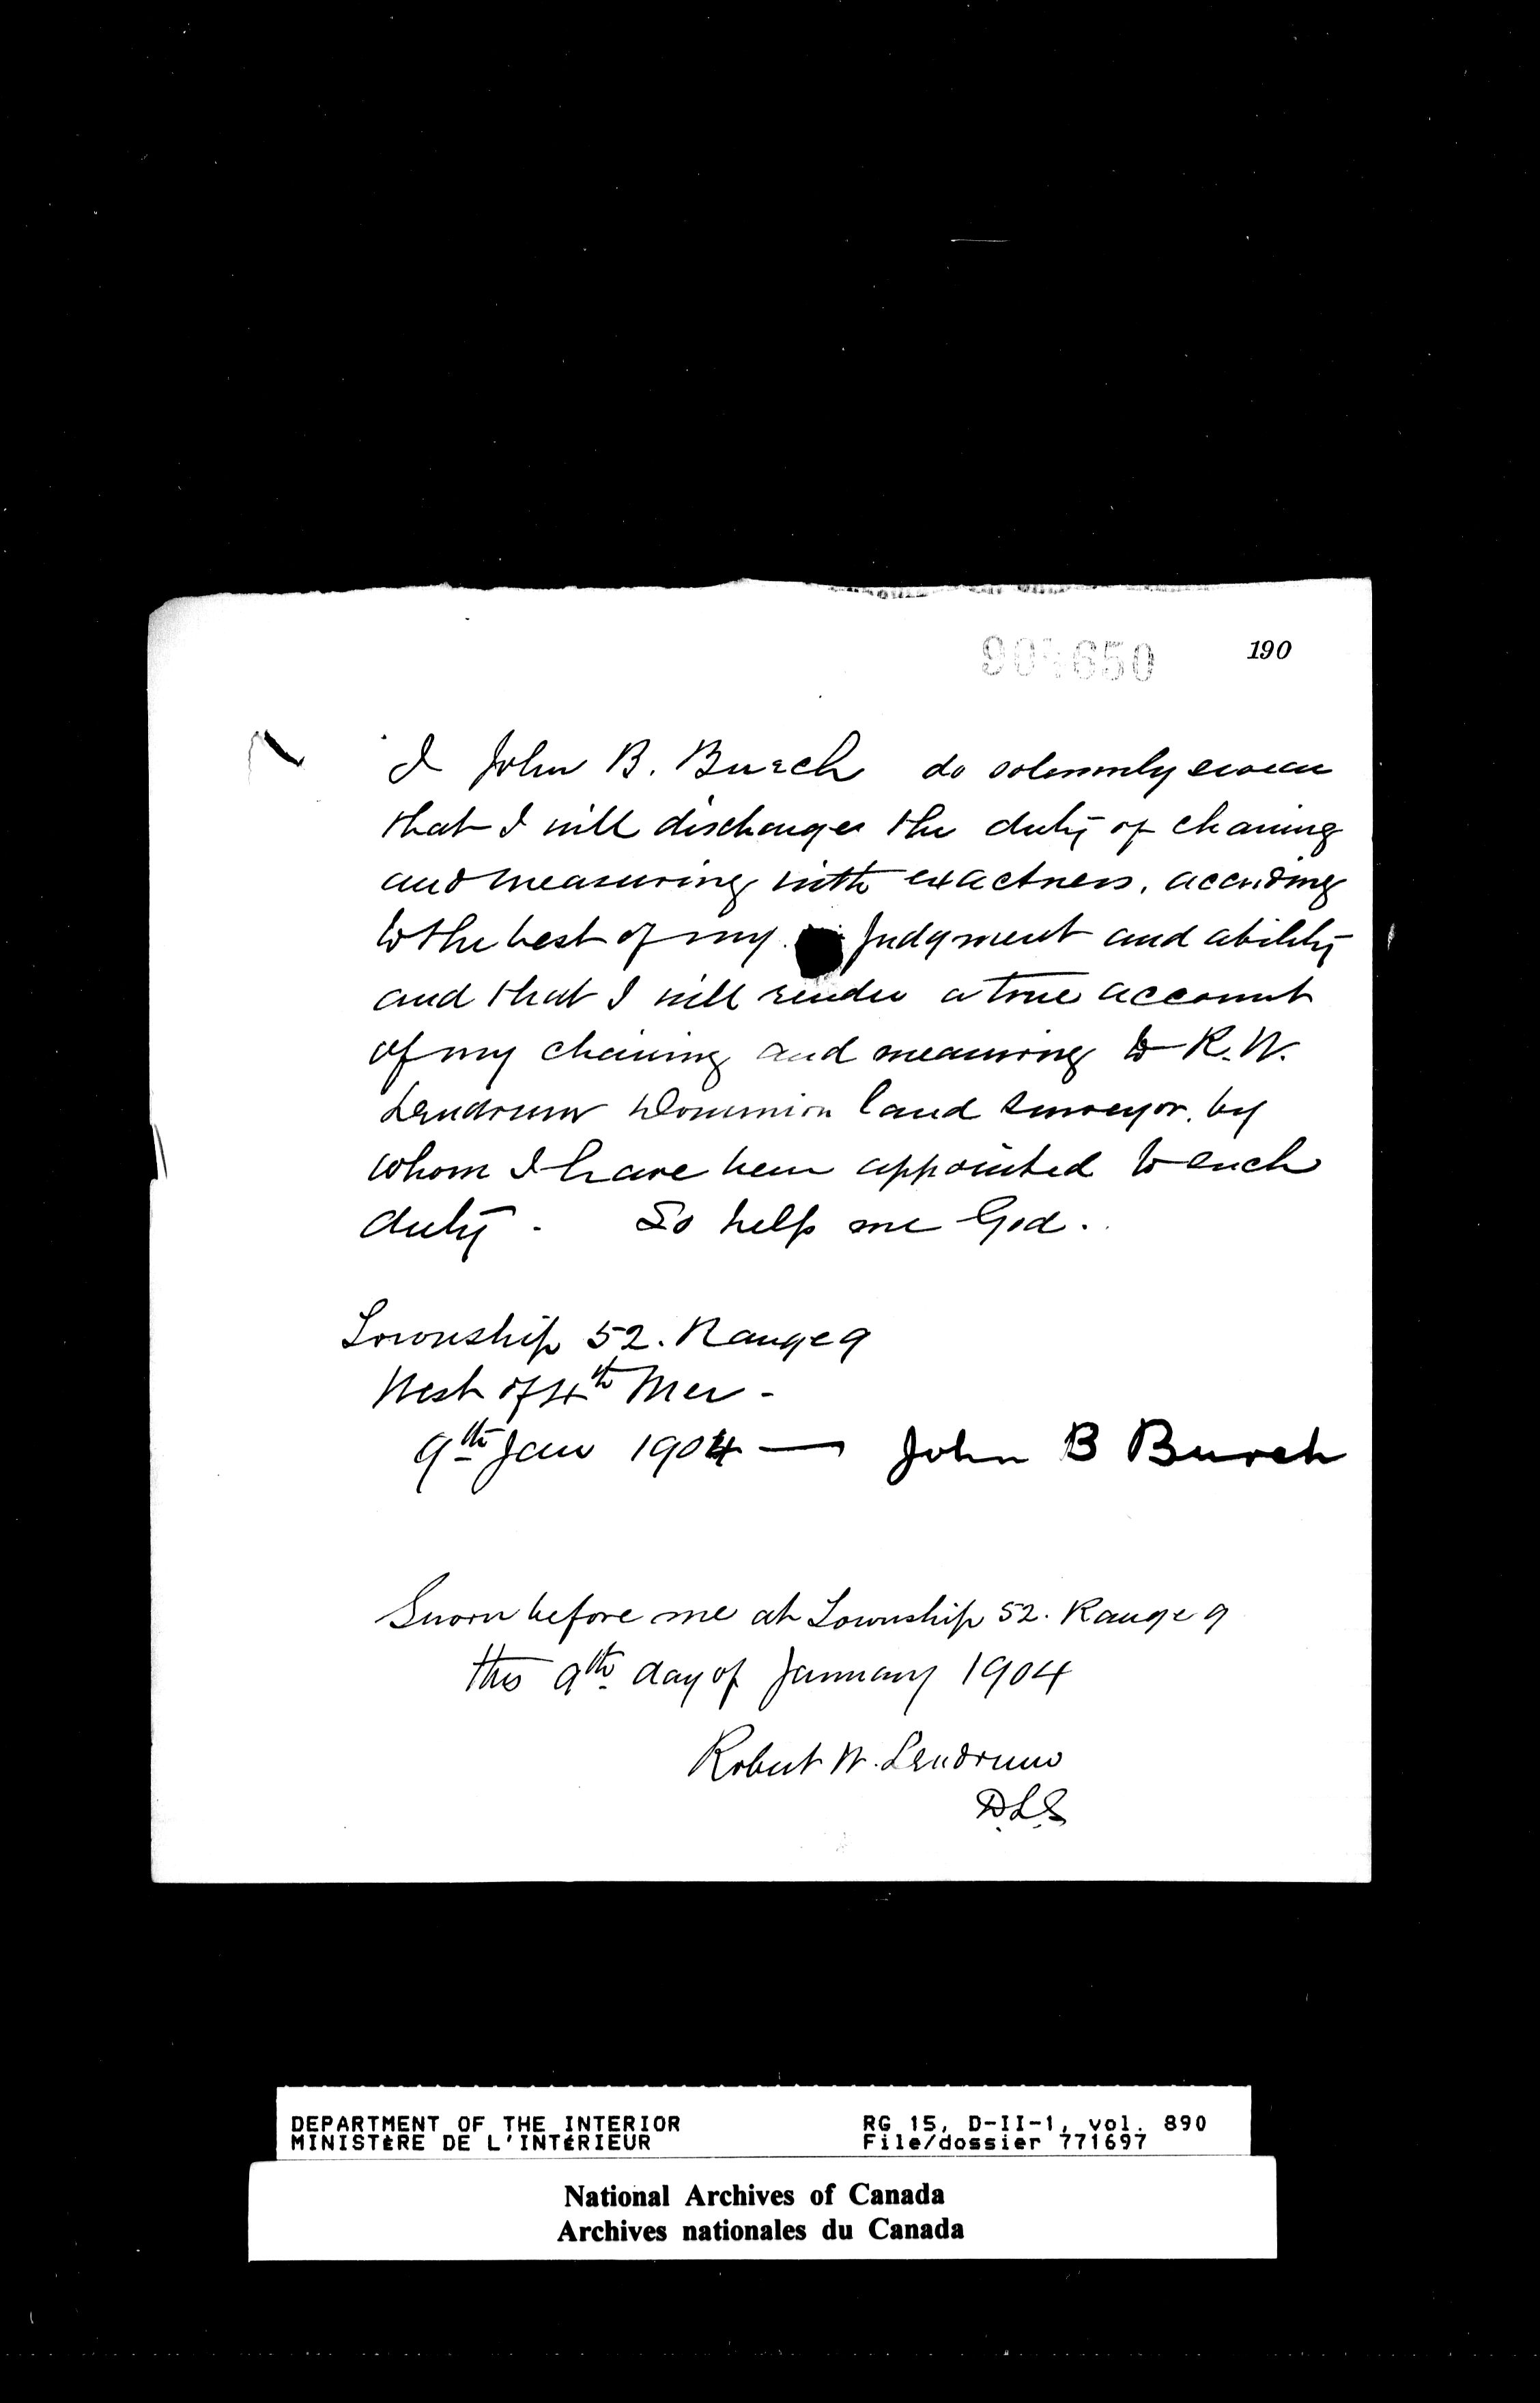 190
I John B. Burch do solemnly swear
that I will discharge the duty of chaining
and measuring with exactness, according
to the best of my judgment and ability
and that I will render a true account
of my chaining and measuring to R. W.
Lendrum Dominion land surveyor, by
whom I have been appointed to such
duty. So help me God.
Township 52. Range 9
West of 4th Mer -
9th Jan 1904 — John B Burch
Sworn before me at Township 52. Range 9
this 9th day of January 1904
Robert W. Lendrum
D.L.S
DEPARTMENT OF THE INTERIOR RG 15, D-II-1, vol. 890
MINISTÈRE DE L'INTÉRIEUR File/dossier 771697
National Archives of Canada
Archives nationales du Canada